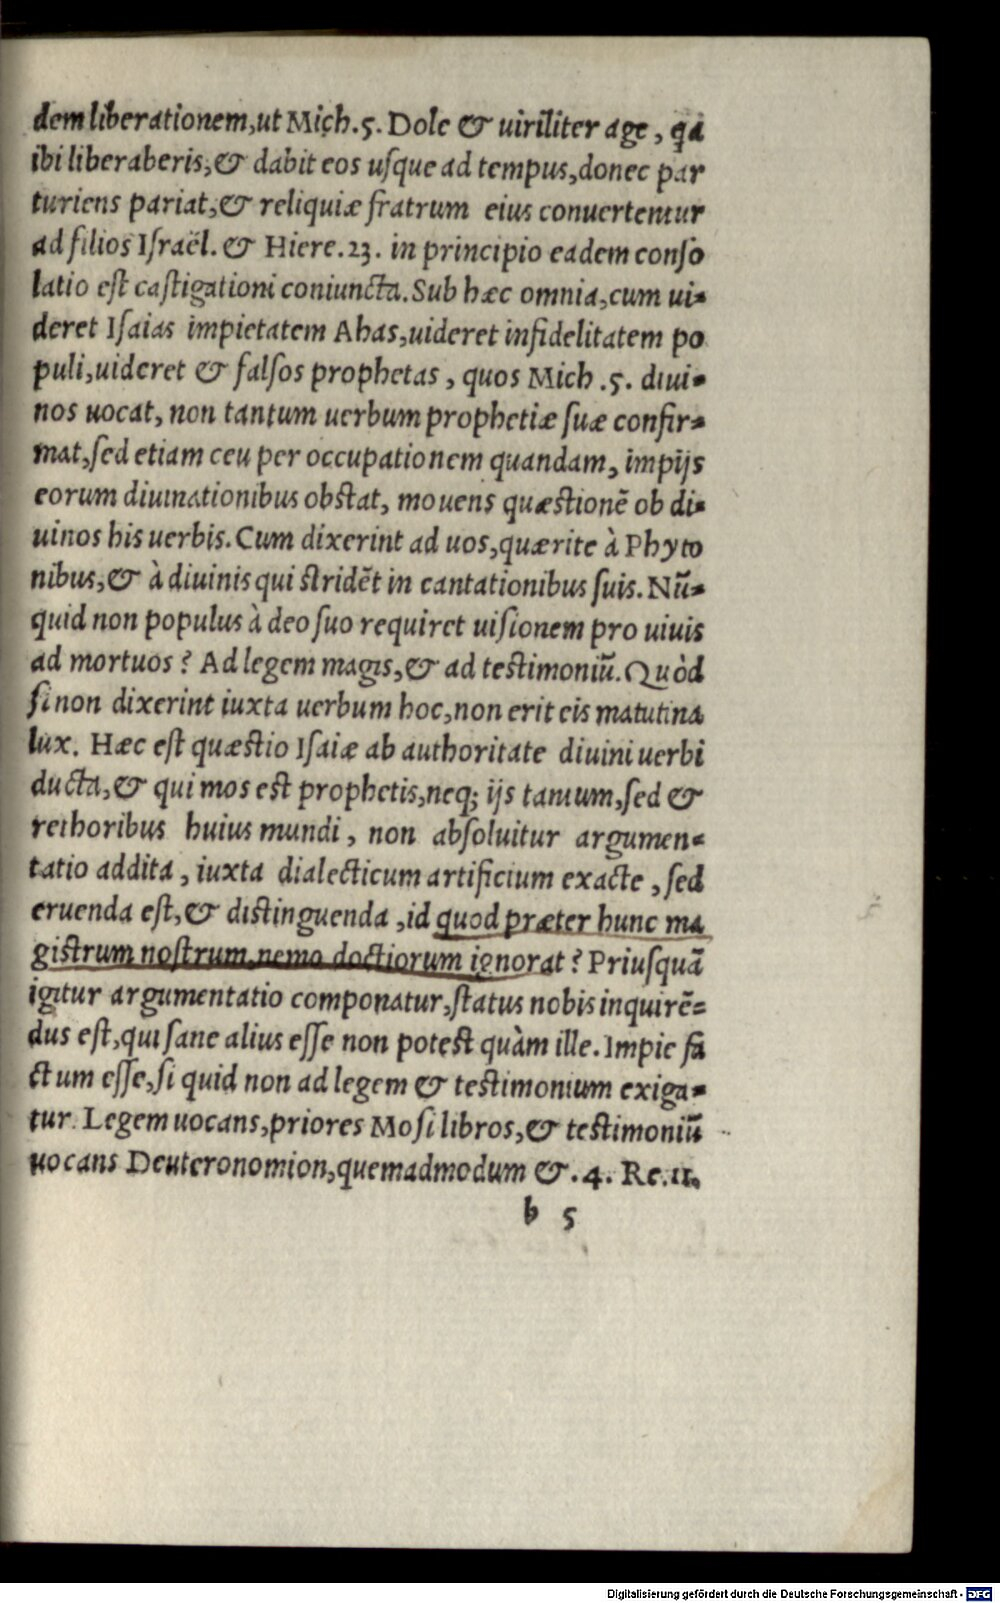 dem liberationem,ut Mich.5. Dole & uiriliter age, ꝗa
ibi liberaberis,& dabit eos uſque ad tempus,donec par
turiens pariat,& reliquiæ fratrum eius conuertentur
ad filios Iſraël. & Hiere.23. in principio eadem conſo
latio eſt caſtigationi coniuncta. Sub hæc omnia,cum ui-
deret Iſaias impietatem Ahas,uideret infidelitatem po
puli,uideret & falſos prophetas, quos Mich.5. diui-
nos uocat, non tantum uerbum prophetiæ ſuæ confir-
mat,ſed etiam ceu per occupationem quandam, impijs
eorum diuinationibus obſtat, mouens quæſtionē ob di-
uinos his uerbis. Cum dixerint ad uos,quærite à Phyto
nibus,& à diuinis qui ſtridēt in cantationibus ſuis. Nū-
quid non populus à deo ſuo requiret uiſionem pro uiuis
ad mortuos? Ad legem magis,& ad teſtimoniū. Quòd
ſi non dixerint iuxta uerbum hoc,non erit eis matutina
lux. Hæc eſt quæſtio Iſaiæ ab authoritate diuini uerbi
ducta,& qui mos eſt prophetis,neqꝫ ijs tantum,ſed &
rethoribus huius mundi, non abſoluitur argumen-
tatio addita, iuxta dialecticum artificium exacte, ſed
eruenda eſt,& diſtinguenda,id quod præter hunc ma
giſtrum noſtrum,nemo doctiorum ignorat? Priuſquā
igitur argumentatio componatur,ſtatus nobis inquirē-
dus eſt,qui ſane alius eſſe non poteſt quàm ille. Impie fa
ctum eſſe,ſi quid non ad legem & teſtimonium exiga-
tur. Legem uocans,priores Moſi libros,& teſtimoniū
uocans Deuteronomion,quemadmodum &.4. Re.11.
b 5
Digitalisierung gefördert durch die Deutsche Forschungsgemeinschaft - DFG